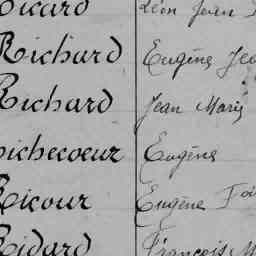 Ricard Léon Jean
Richard Eugène
Richard Jean Marie
Richecoeur Eugène
Ricour Eugène
Ridard François